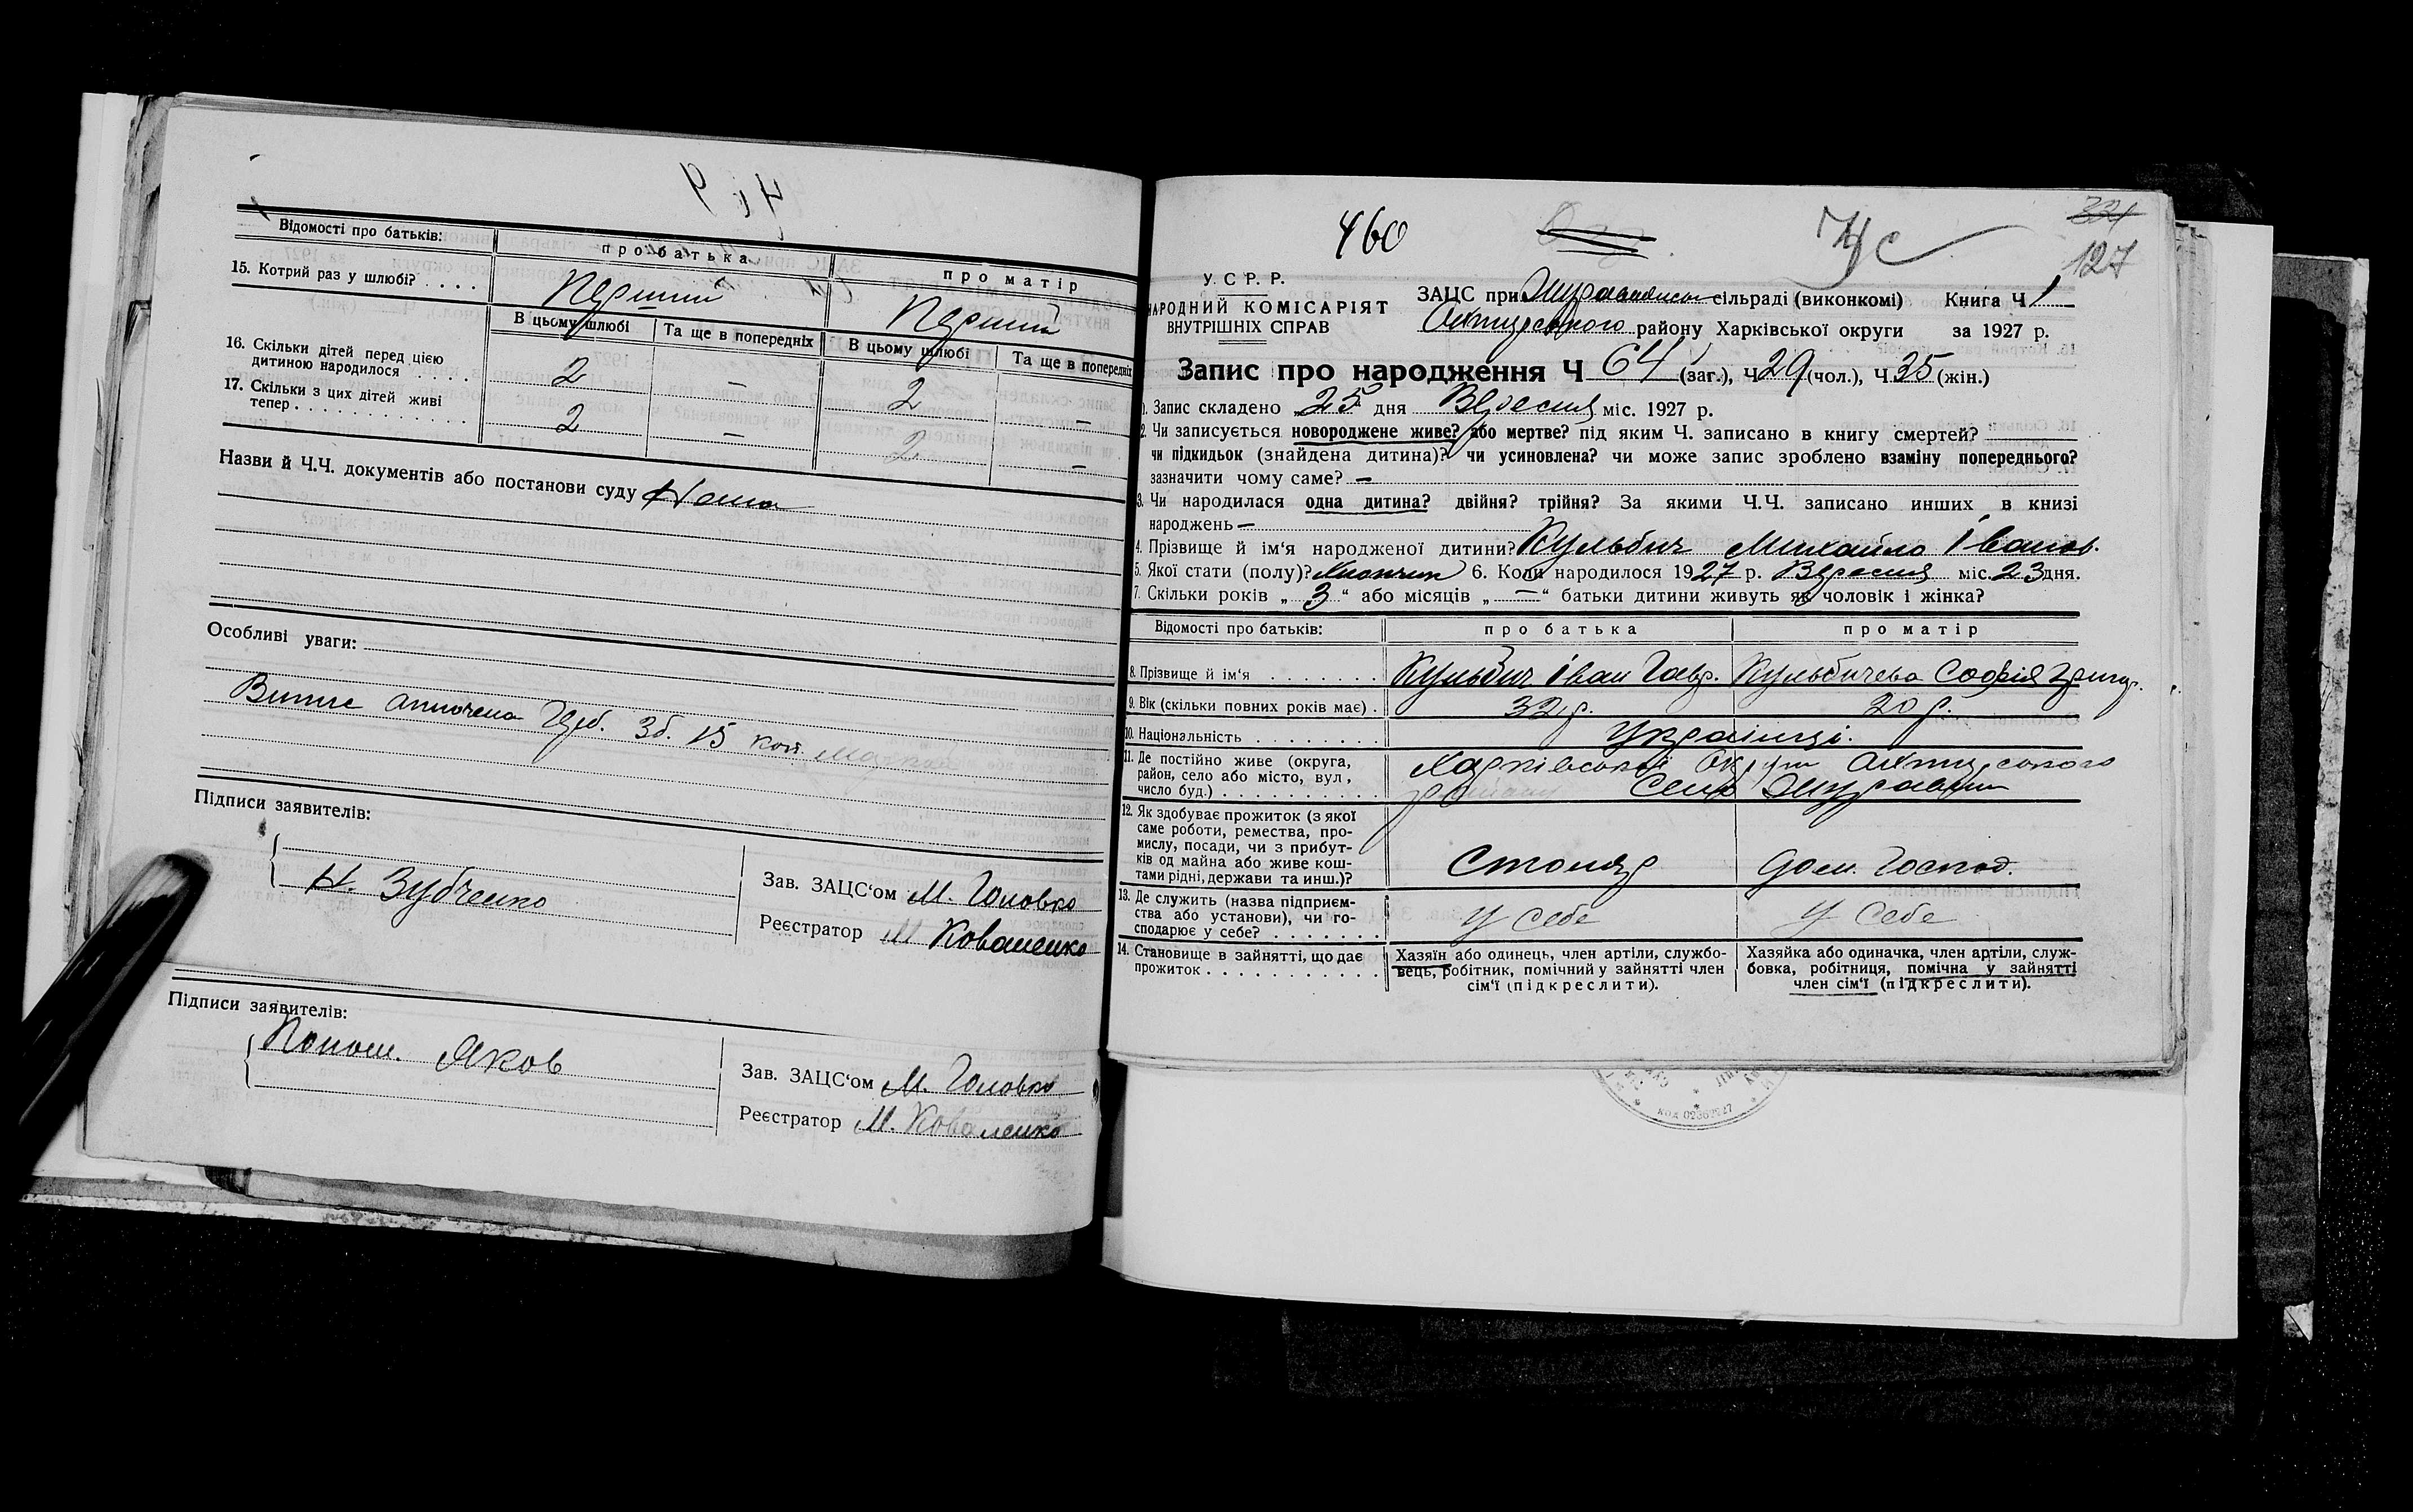 Відомості про батьків:
про батька
про матір
15. Котрий раз у шлюбі? . . . .
Перший
Перший
В цьому шлюбі
Та ще в попередніх
В цьому шлюбі
Та ще в попередніх
16. Скільки дітей перед цією
дитиною народилося . . . . .
2
—
2
—
17. Скільки з цих дітей живі
тепер . . . . . . . . . . .
2
—
2
—
Назви й Ч.Ч. документів або постанови суду Нема
Особливі уваги:
Зб. 15 коп.
Підписи заявителів:
Н. Зубченко
Зав. ЗАЦС'ом М. Головко
Реєстратор М Коваленко
Підписи заявителів:
Яков
Зав. ЗАЦС'ом М. Головко
Реєстратор М. Коваленко
460
331
127
У. С. Р. Р.
НАРОДНИЙ КОМІСАРІЯТ
ВНУТРІШНІХ СПРАВ
ЗАЦС при сільраді (виконкомі) Книга Ч 1
Охтирського району Харківської округи за 1927 р.
Запис про народження Ч 64 (заг.), Ч 29 (чол.), Ч 35 (жін.)
1. Запис складено „25“ дня Вересня міс. 1927 р.
2. Чи записується новороджене живе? або мертве? під яким Ч. записано в книгу смертей?
чи підкидьок (знайдена дитина)? чи усиновлена? чи може запис зроблено взаміну попереднього?
зазначити чому саме? —
3. Чи народилася одна дитина? двійня? трійня? За якими Ч.Ч. записано инших в книзі
народжень —
4. Прізвище й ім'я народженої дитини? Кульбич Михайло Іванов.
5. Якої стати (полу)? Хлопчик 6. Коли народилося 1927 р. Вересня міс. 23 дня.
7. Скільки років „ 3 “ або місяців „ — “ батьки дитини живуть як чоловік і жінка?
Відомості про батьків:
про батька
про матір
8. Прізвище й ім'я . . . . . . .
Кульбич Іван Гавр.
Кульбичева Софія Григор.
9. Вік (скільки повних років має) .
32 р.
20 р.
10. Національність . . . . . . . .
Українці.
11. Де постійно живе (округа,
район, село або місто, вул,
число буд.) . . . . . . . . . .
Харківської Округи Охтирського
району Село Журавни
12. Як здобуває прожиток (з якої
саме роботи, ремества, про-
мислу, посади, чи з прибут-
ків од майна або живе кош-
тами рідні, держави та инш.)?
Столяр
дом. господ.
13. Де служить (назва підприєм-
ства або установи), чи го-
сподарює у себе? . . . . . . .
У себе
У себе
14. Становище в зайнятті, що дає
прожиток . . . . . . . . . . .
Хазяїн або одинець, член артіли, службо-
вець, робітник, помічний у зайнятті член
сім'ї (підкреслити).
Хазяйка або одиначка, член артіли, служ-
бовка, робітниця, помічна у зайнятті
член сім'ї (підкреслити).